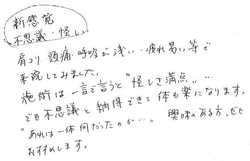 新感覚
不思議・怪しい
肩コリ 頭痛・呼吸が浅い・疲れ易い等で
来院してみました。
施術は一言で言うと"怪しさ満点"…
でも不思議と納得できて体も楽になります。
"あれは一体何だったのか…" 興味のある方、ぜひ
おすすめします。